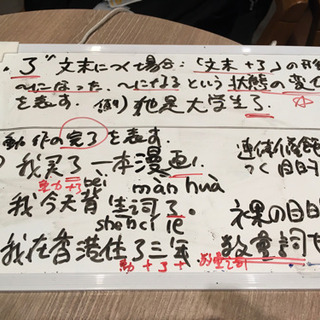 .了" 文末につく場合:「文末+了」の形
~になった、~になるという状態の変化
を表す. 例) 她是大学生了.
動作の完了を表す
我买了一本漫画. 連体修飾
動+了 běi màn huà つく目的
我今天背生詞了。
shēngcí le
我在香港住了三年 数量詞
動+了+数量詞